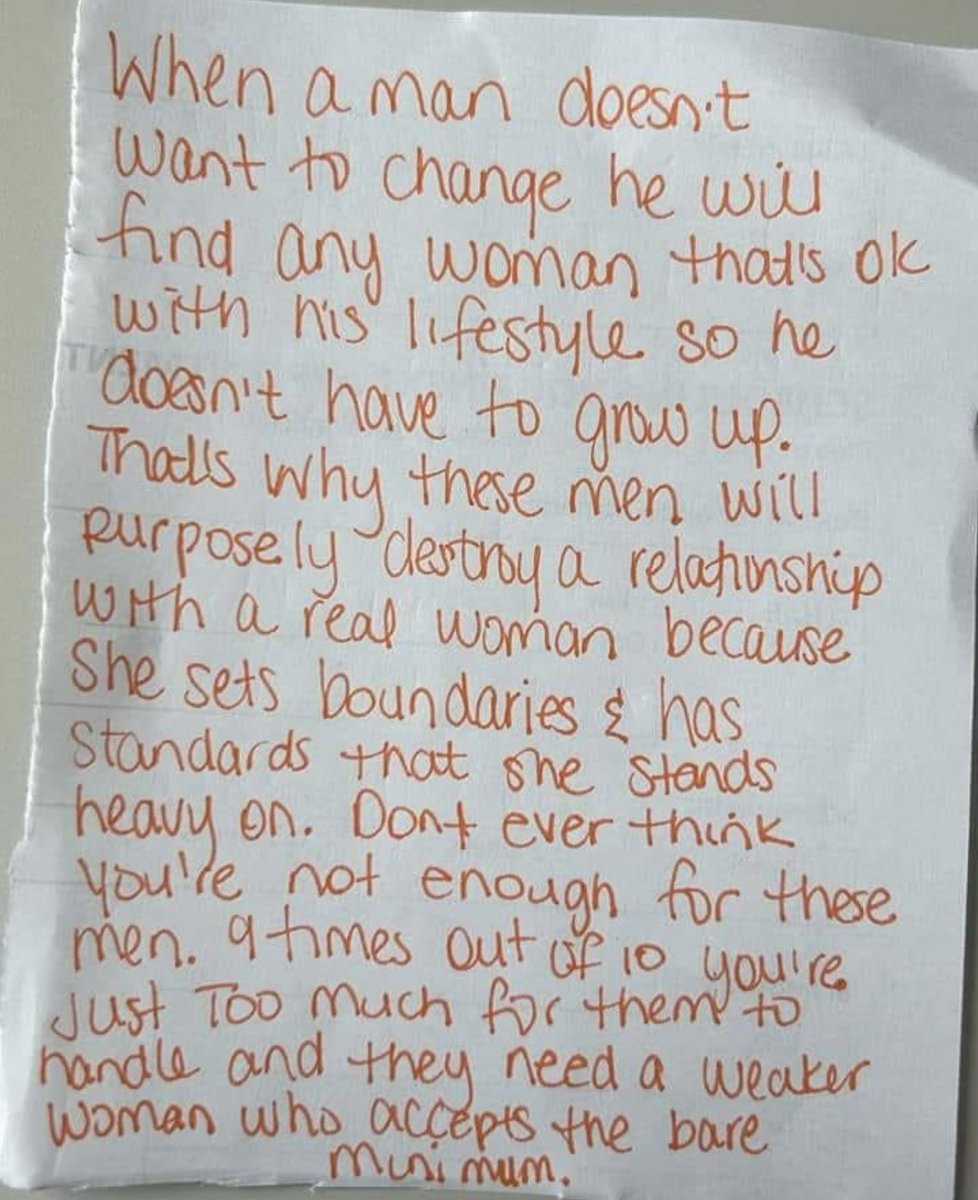 When a man doesn't
want to change he will
find any woman that's ok
with his lifestyle so he
doesn't have to grow up.
That's why these men will
purposely destroy a relationship
with a real woman because
She sets boundaries & has
standards that she stands
heavy on. Dont ever think
you're not enough for these
men. 9 times out of 10 you're
just Too much for them to
handle and they need a weaker
woman who accepts the bare
minimum.